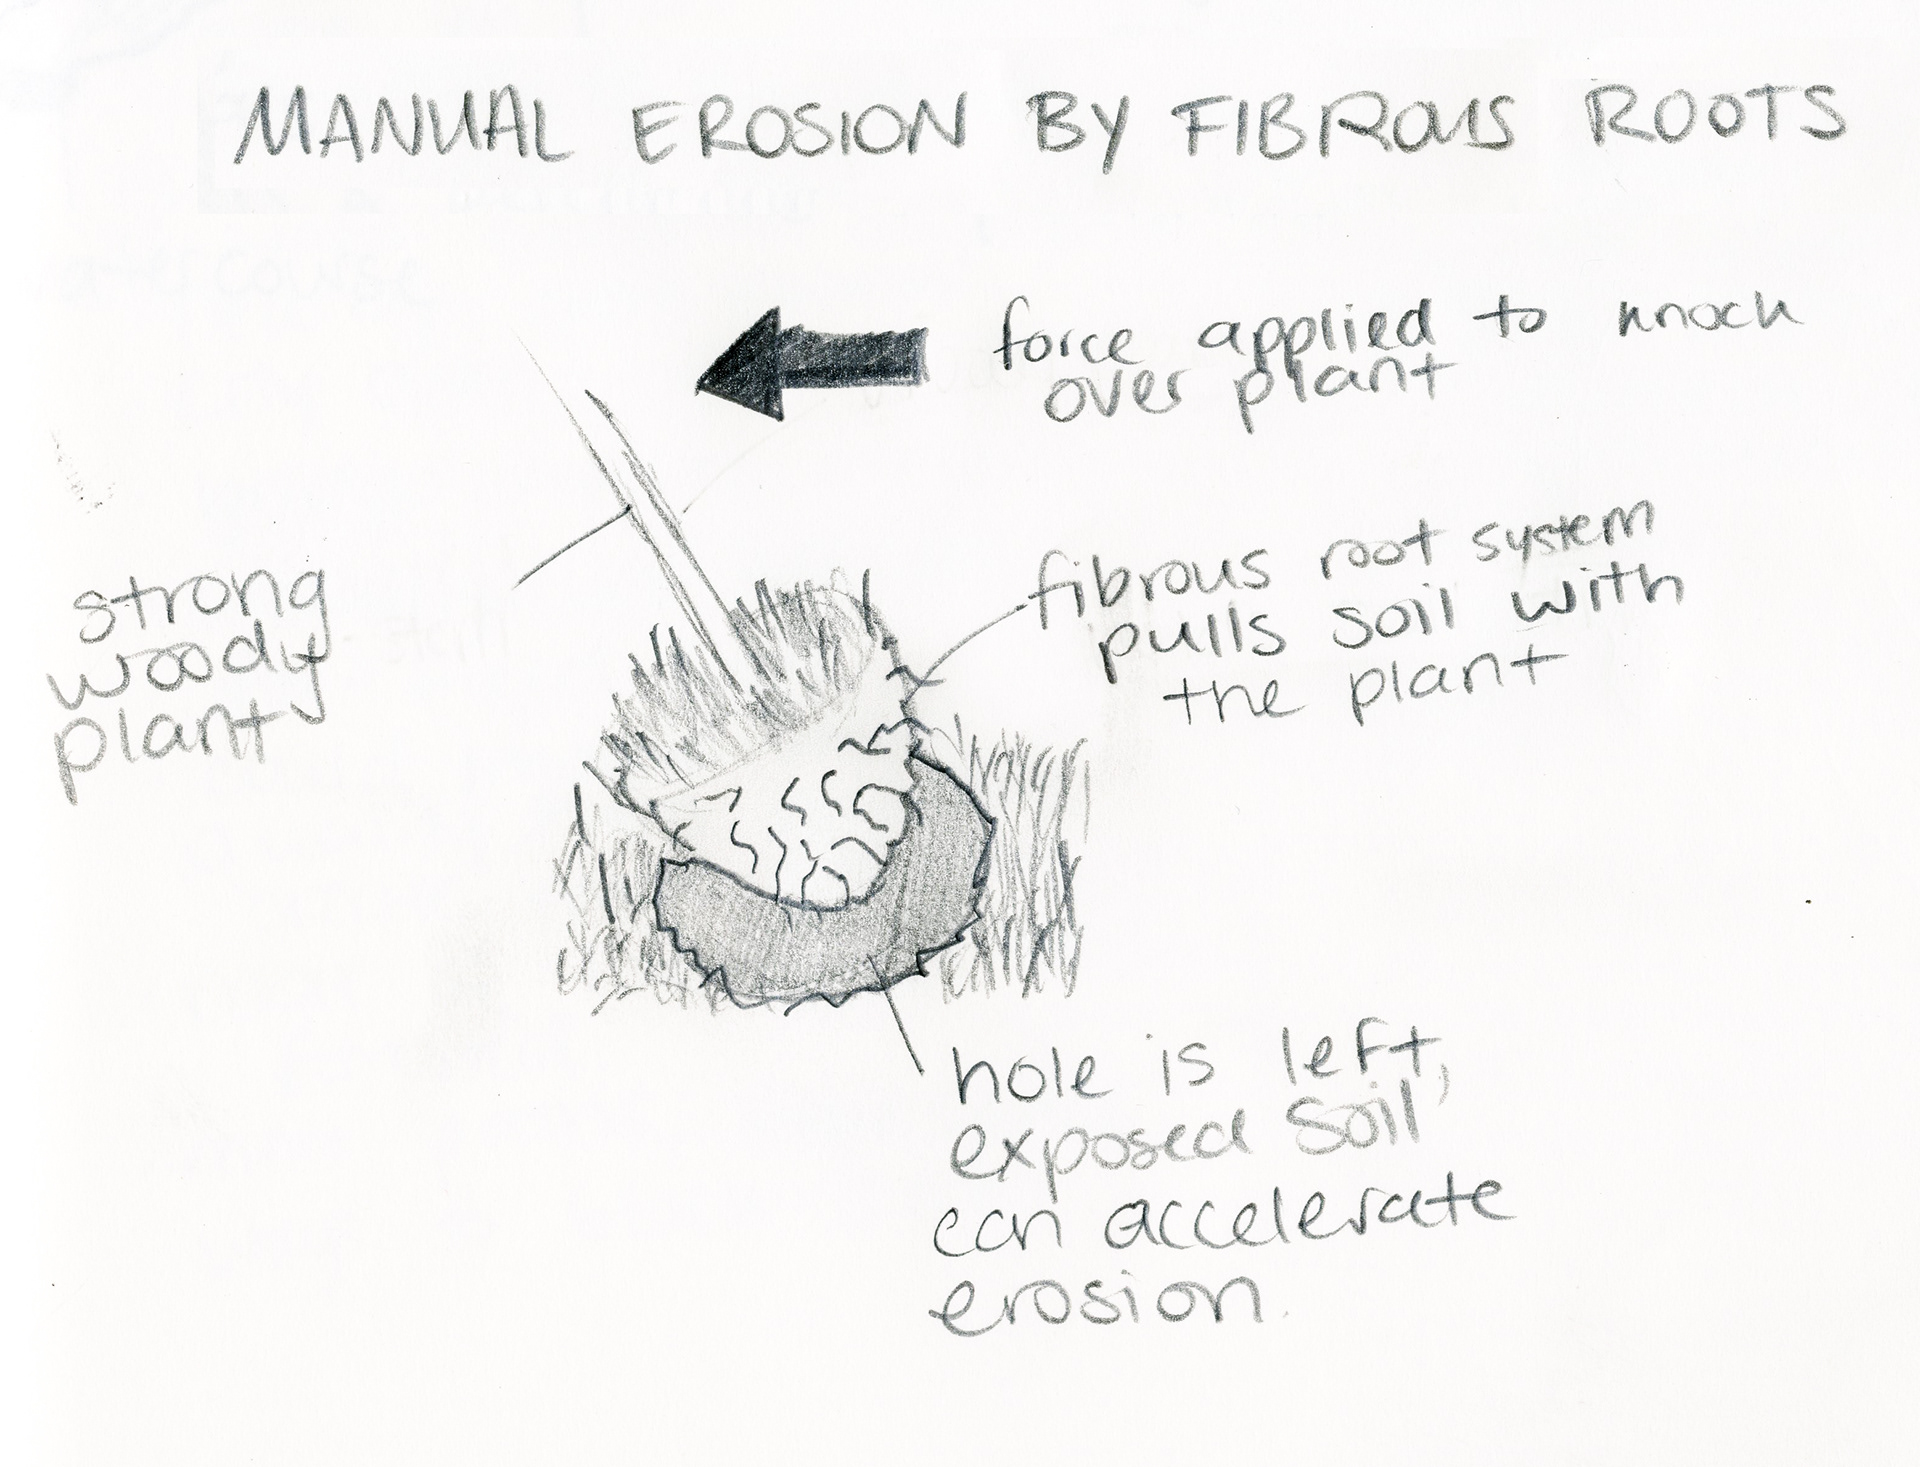 MANUAL EROSION BY FIBROUS ROOTS
force applied to knock
over plant
strong
woody
plant
fibrous root system
pulls soil with
the plant
hole is left,
exposed soil
can accelerate
erosion.